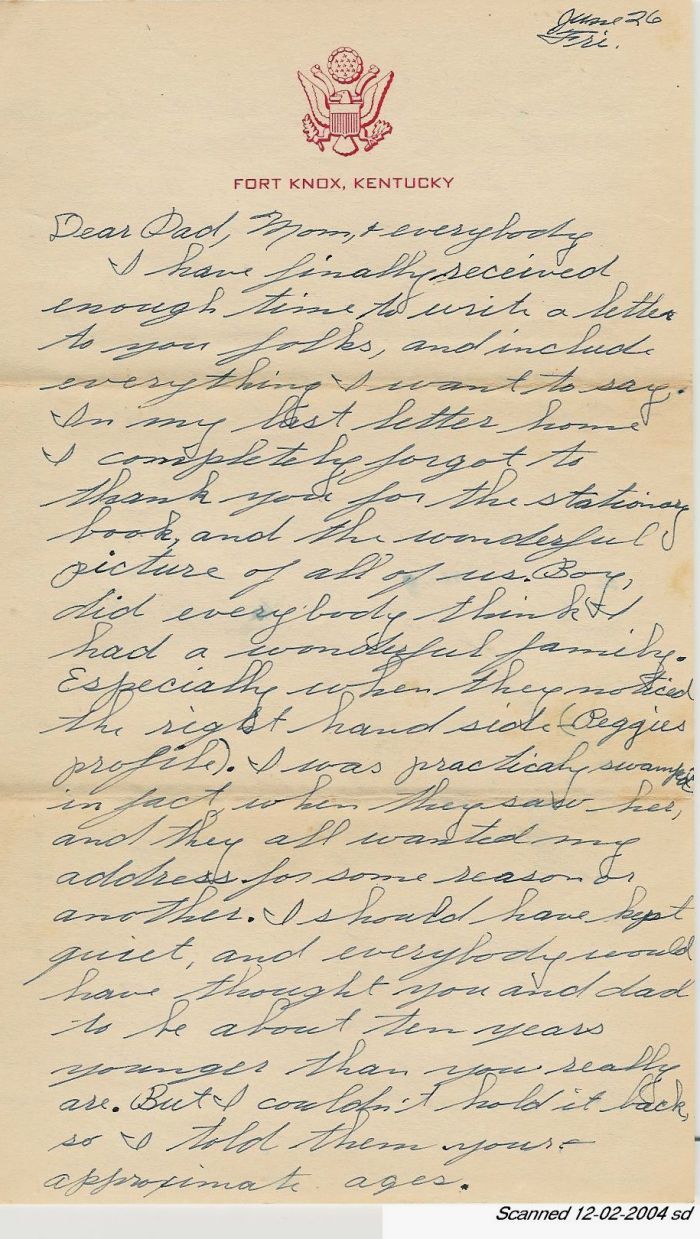 June 26
Fri.
FORT KNOX, KENTUCKY
Dear Dad, Mom, & everybody
I have finally received
enough time to write a letter
to you folks, and include
everything I want to say.
In my last letter home
I completely forgot to
thank you for the stationary
book, and the wonderful
picture of all of us. Boy,
did everybody think I
had a wonderful family.
Especially when they noticed
the right hand side (Peggies
profile). I was practicaly swamped
in fact, when they saw her,
and they all wanted my
address for some reason or
another. I should have kept
quiet, and everybody would
have thought you and dad
to be about ten years
younger than you really
are. But I couldn't hold it back,
so I told them your
approximate ages.
Scanned 12-02-2004 sd